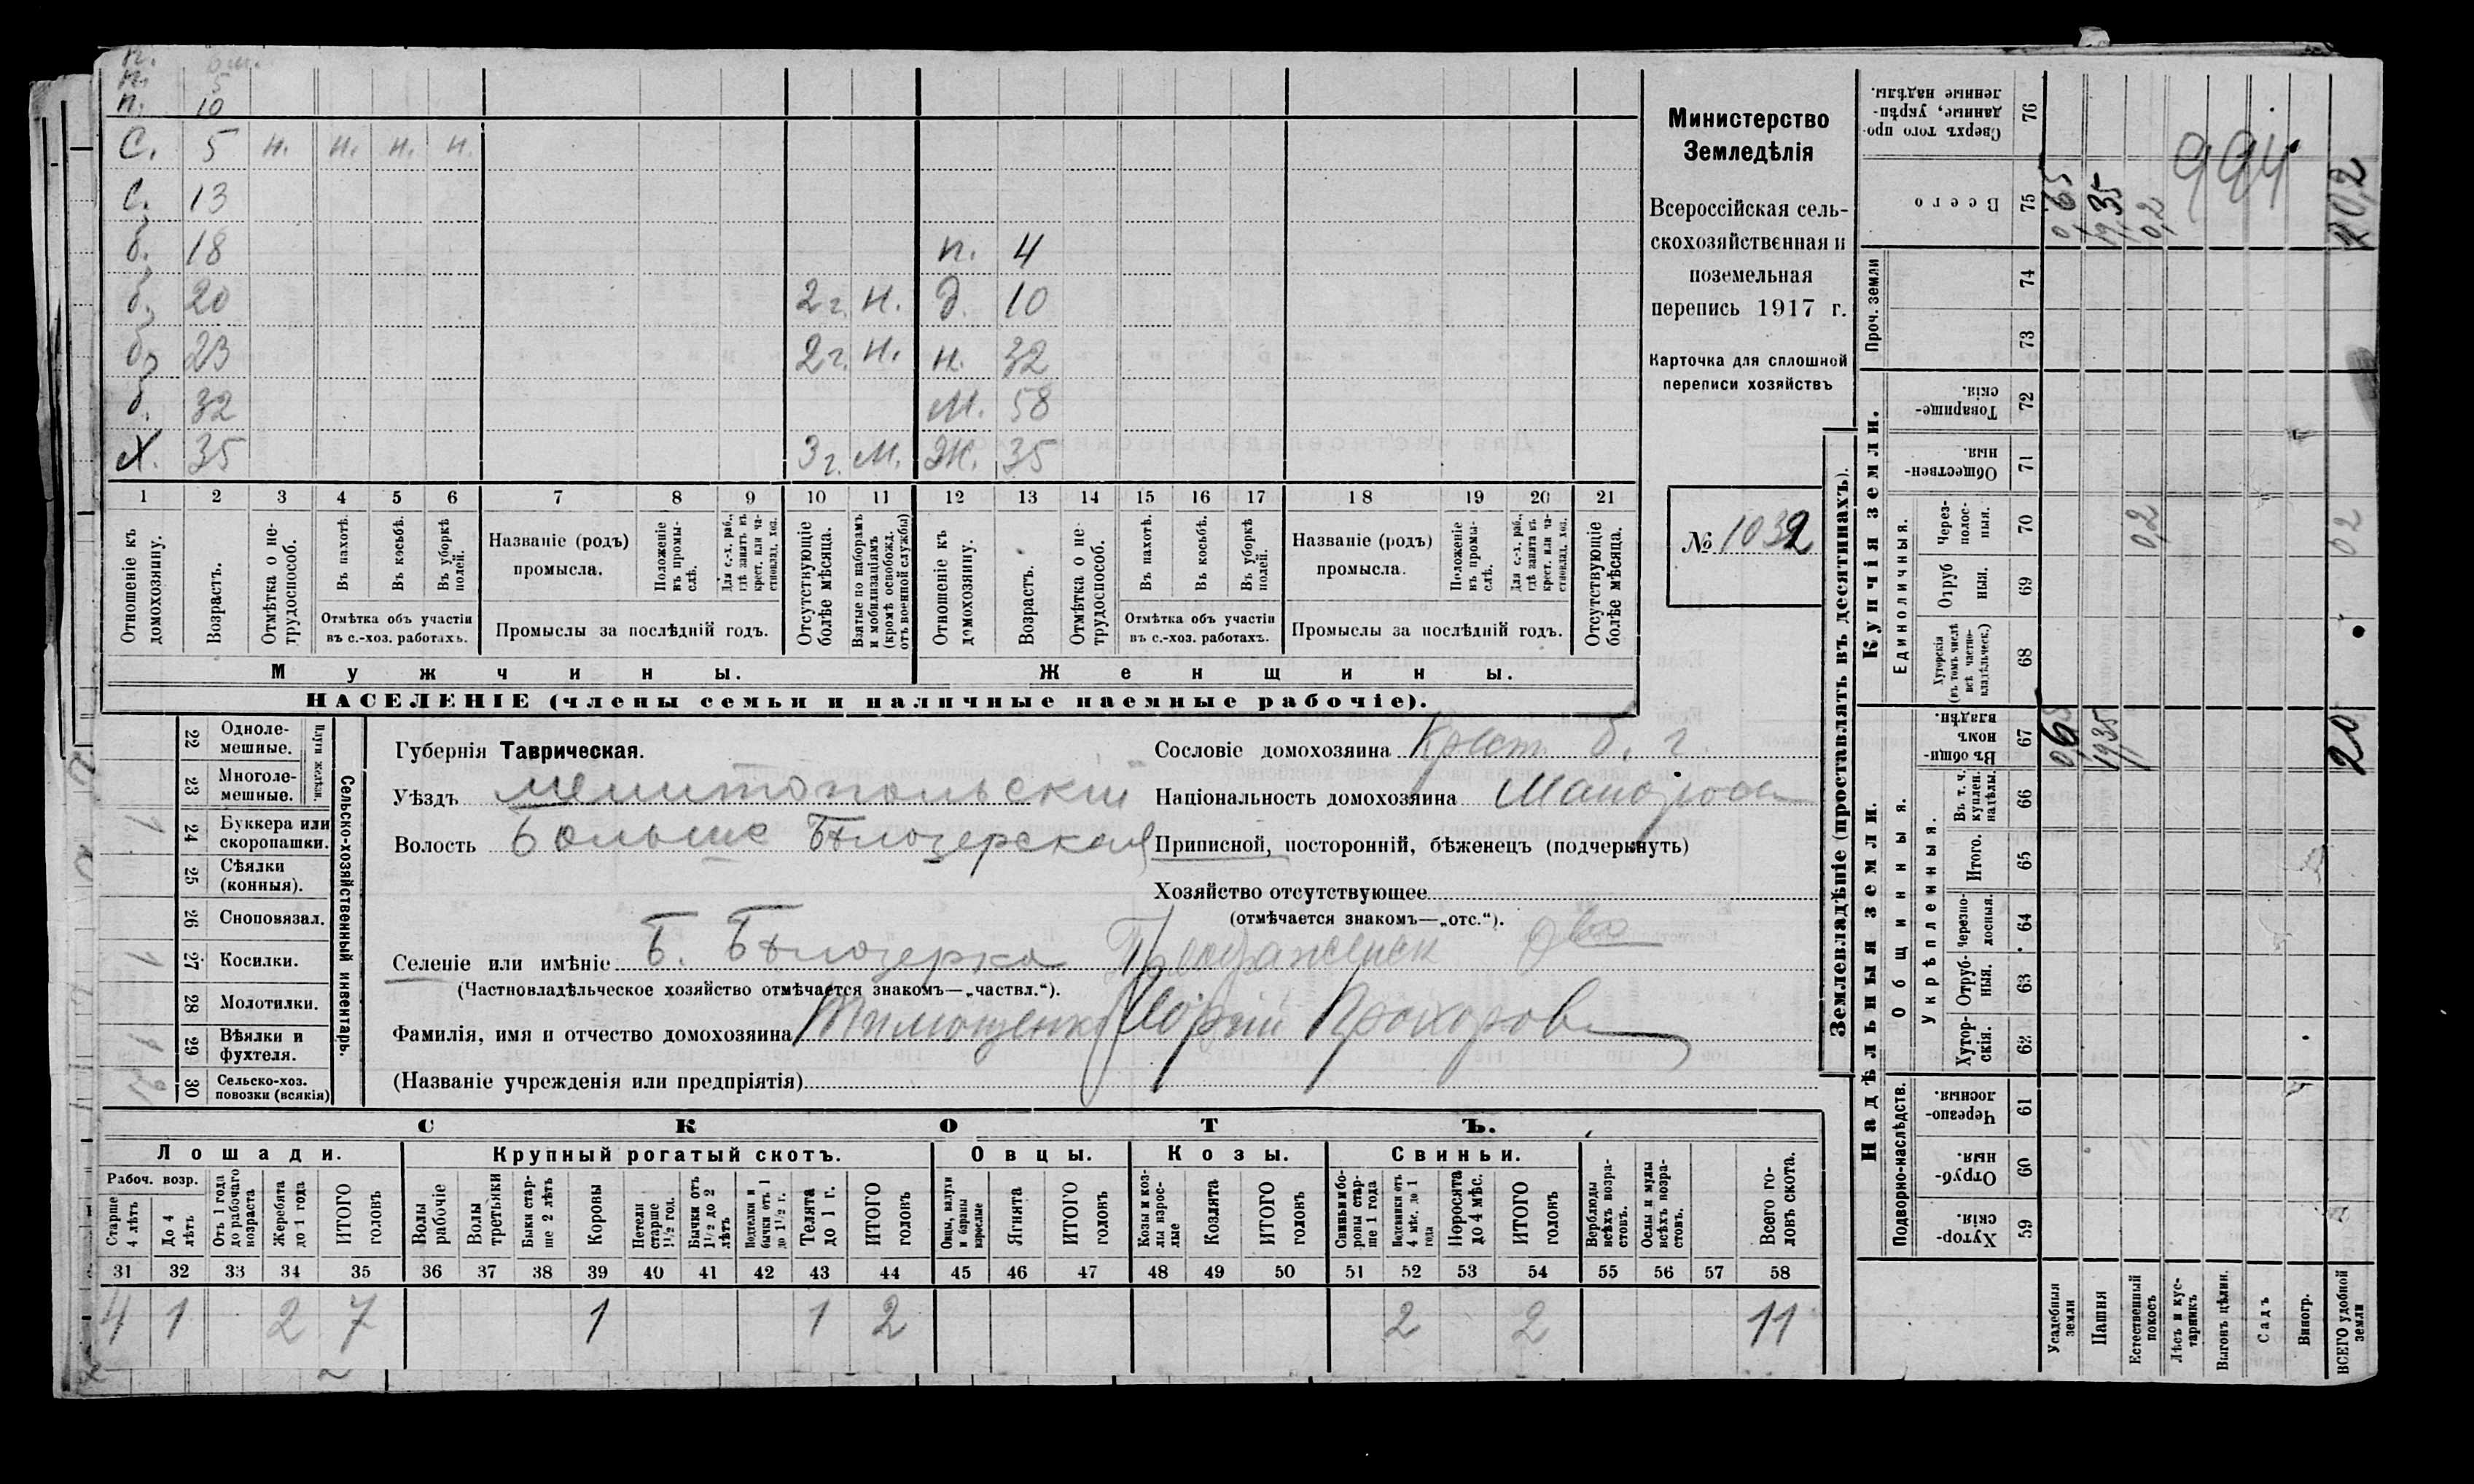 п. 10
С. 5 н. н. н. н.
С. 13
б. 18 п. 4
б. 20 2 г. н. д. 10
б. 23 2 г. н. н. 32
б. 32 м. 58
Х. 35 3 г. м. Ж. 35
1 2 3 4 5 6 7 8 9 10 11 12 13 14 15 16 17 18 19 20 21
Отношеніе къ домохозяину.
Возрастъ.
Отмѣтка о нетрудоспособ.
Въ пахотѣ.
Въ косьбѣ.
Въ уборкѣ полей.
Отмѣтка объ участіи въ с.-хоз. работахъ.
Названіе (родъ) промысла.
Положеніе въ промыслѣ.
Для с.-х. раб., гдѣ занятъ въ крест. или частновлад. хоз.
Промыслы за послѣдній годъ.
Отсутствующіе болѣе мѣсяца.
Взятые по наборамъ и мобилизаціямъ (кромѣ освобожд. отъ военной службы)
Отношеніе къ домохозяину.
Возрастъ.
Отмѣтка о нетрудоспособ.
Въ пахотѣ.
Въ косьбѣ.
Въ уборкѣ полей.
Отмѣтка объ участіи въ с.-хоз. работахъ.
Названіе (родъ) промысла.
Положеніе въ промыслѣ.
Для с.-х. раб., гдѣ занята въ крест. или частновлад. хоз.
Промыслы за послѣдній годъ.
Отсутствующіе болѣе мѣсяца.
Мужчины.
Женщины.
НАСЕЛЕНІЕ (члены семьи и наличные наемные рабочіе).
Министерство
Земледѣлія
Всероссійская сель-
скохозяйственная и
поземельная
перепись 1917 г.
Карточка для сплошной
переписи хозяйствъ
№ 1032
22 Одноле-
мешные.
23 Многоле-
мешные.
Плуги желѣзн.
24 Буккера или
скоропашки.
1
25 Сѣялки
(конныя).
26 Сноповязал.
27 Косилки.
1
28 Молотилки.
29 Вѣялки и
фухтеля.
1
30 Сельско-хоз.
повозки (всякія)
2
Сельско-хозяйственный инвентарь.
Губернія Таврическая.
Уѣздъ Мелитопольскій
Волость Больше Бѣлозерская
Селеніе или имѣніе Б. Бѣлозерка
(Частновладѣльческое хозяйство отмѣчается знакомъ—„частвл.“).
Фамилія, имя и отчество домохозяина Тимошенко Прохоров
(Названіе учрежденія или предпріятія)
Сословіе домохозяина Крест. б. г.
Національность домохозяина Малорос
Приписной, посторонній, бѣженецъ (подчеркнуть)
Хозяйство отсутствующее
(отмѣчается знакомъ—„отс.“).
СКОТЪ.
Лошади. Крупный рогатый скотъ. Овцы. Козы. Свиньи.
Рабоч. возр.
Старше 4 лѣтъ
До 4 лѣтъ
Отъ 1 года до рабочаго возраста
Жеребята до 1 года
ИТОГО головъ
Волы рабочіе
Волы третьяки
Быки старше 2 лѣтъ
Коровы
Нетели старше 1½ год.
Бычки отъ 1½ до 2 лѣтъ
Подтелки и бычки отъ 1 до 1½ г.
Телята до 1 г.
ИТОГО головъ
Овцы, валухи и бараны взрослые
Ягнята
ИТОГО головъ
Козы и козлы взрослые
Козлята
ИТОГО головъ
Свиньи и боровы старше 1 года
Подсвинки отъ 4 мѣс. до 1 года
Поросята до 4 мѣс.
ИТОГО головъ
Верблюды всѣхъ возрастовъ.
Ослы и мулы всѣхъ возрастовъ.
Всего головъ скота.
31 32 33 34 35 36 37 38 39 40 41 42 43 44 45 46 47 48 49 50 51 52 53 54 55 56 57 58
4 1 2 7 1 1 2 2 2 11
Землевладѣніе (проставлять въ десятинахъ).
Надѣльныя земли.
Купчія земли.
Проч. земли
Подворно-наслѣдств.
Общинныя.
Укрѣпленныя.
Единоличныя.
Сверхъ того проданные, укрѣпленные надѣлы. 76
Всего 75 0,65 19,35 0,2 20,2
994
74
73
Товарищескія. 72
Общественныя. 71
Черезполосныя. 70 0,2 0,2
Отрубныя. 69
Хуторскія (въ томъ числѣ всѣ частновладѣльческ.) 68
Въ общинномъ владѣн. 67 0,65 19,35 20
Въ т. ч. куплен. надѣлы. 66
Итого. 65
Черезполосныя. 64
Отрубныя. 63
Хуторскія. 62
Черезполосныя. 61
Отрубныя. 60
Хуторскія. 59
Усадебныя земли
Пашня
Естественный покосъ
Лѣсъ и кустарникъ
Выгонъ цѣлин.
Садъ
Виногр.
ВСЕГО удобной земли